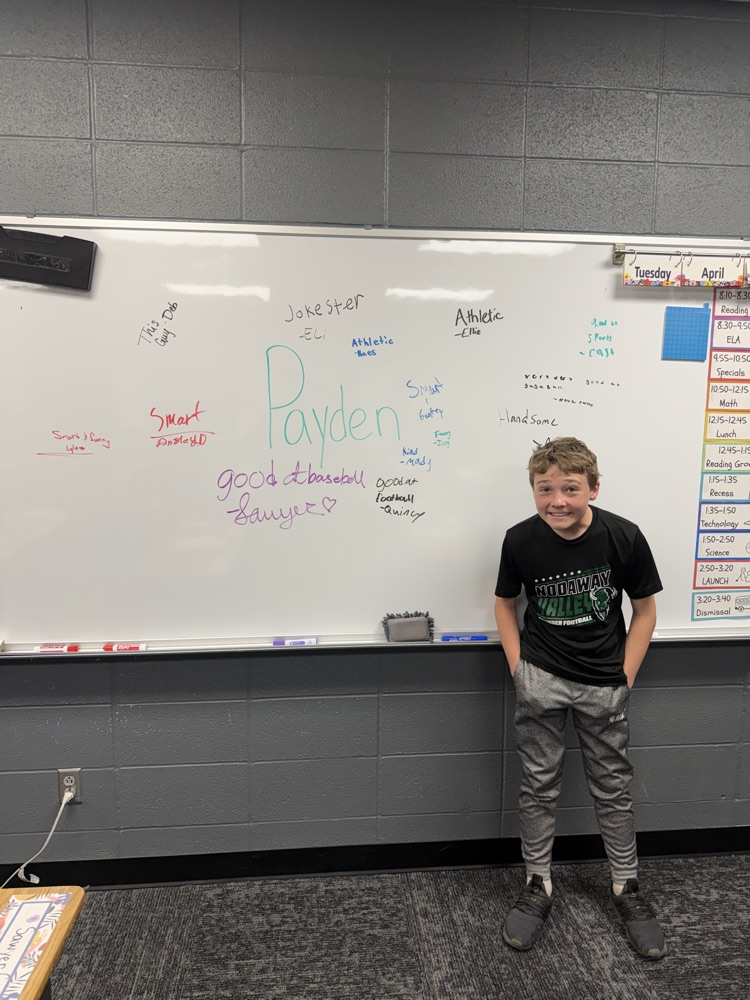 This
Guy-Deb
Jokester
-Eli
Athletic
-Rees
Athletic
-Ellie
Good at
Sports
- Cash
Payden
Smart
very very good at
baseball
Handsome
Smart
Smart & funny
Funny
-Jim
Kind
-Mady
good at baseball
-Sawyer♡
good at
football
-Quincy
Tuesday
April
8:10-8:30
Reading
8:30-9:50
ELA
9:55-10:50
Specials
10:50-12:15
Math
12:15-12:45
Lunch
12:45-1:15
Reading Gro
1:15-1:35
Recess
1:35-1:50
Technology
1:50-2:50
Science
2:50-3:20
LAUNCH
3:20-3:40
Dismissal
NODAWAY
VALLEY
FOOTBALL